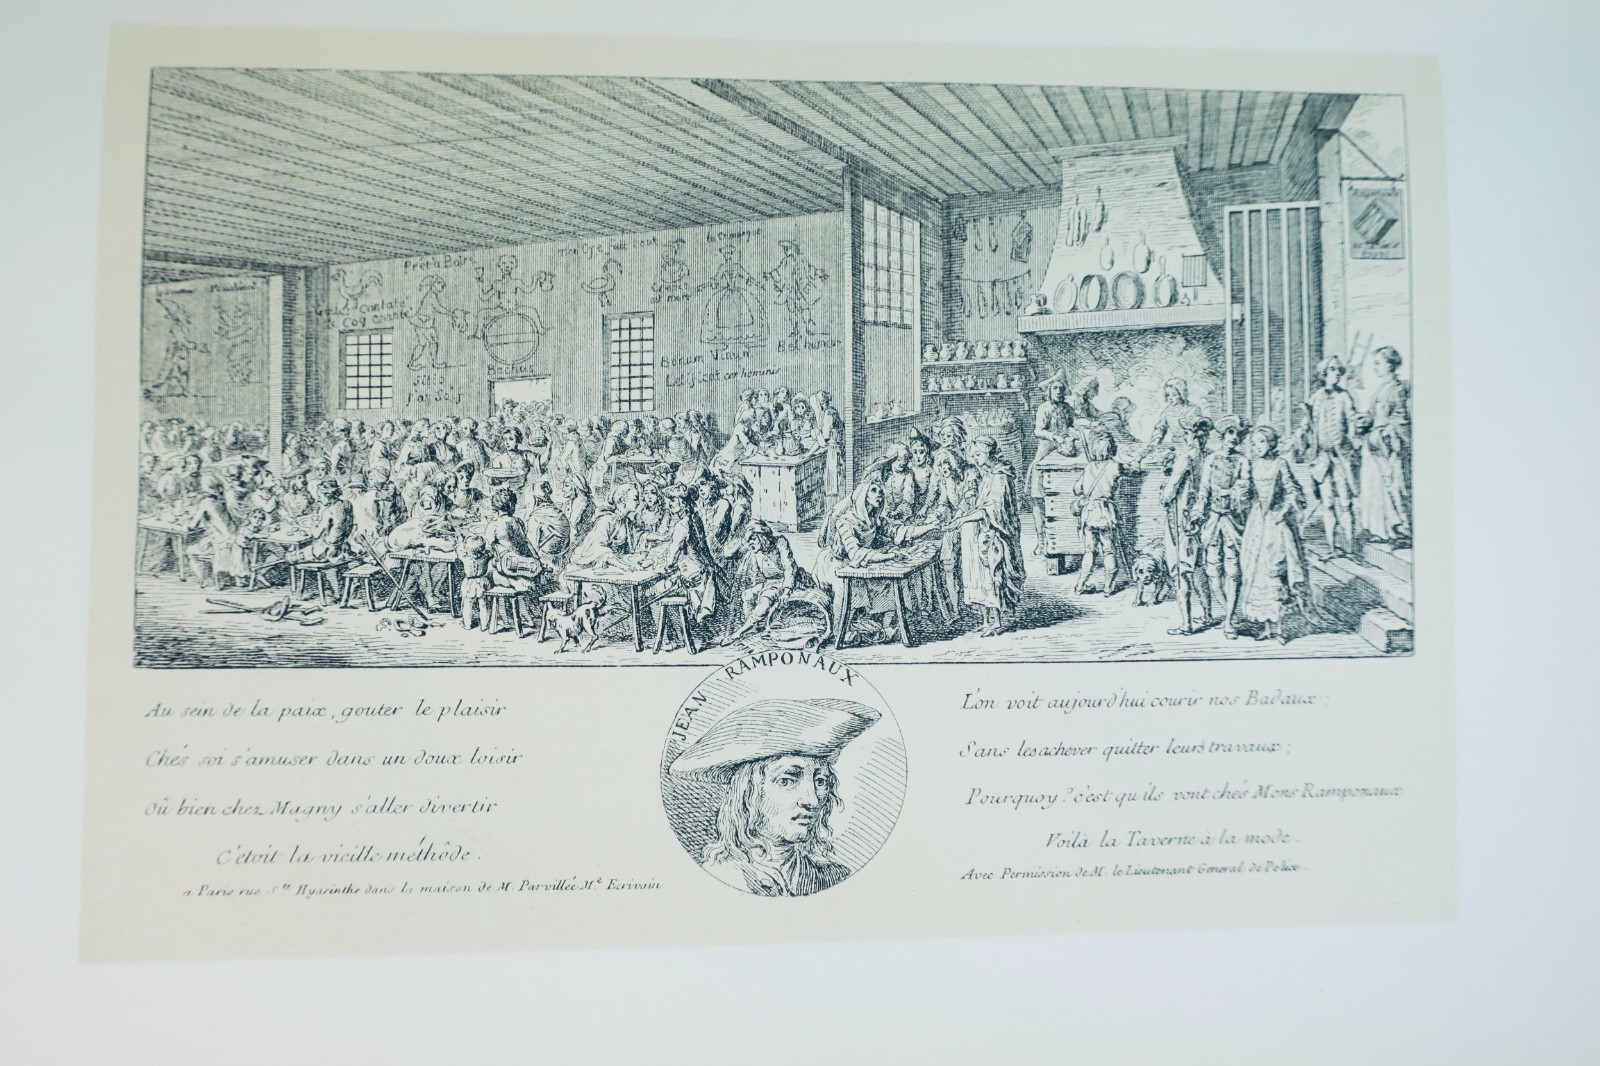 Prêt à Boire
mon Oye fait tout
la Camargue
Gallus Cantat
le Coq Chante
Bachus
sitis
j'ay soif
Bonum Vinum
Lætificat cor hominis
Bel humeur
JEAN RAMPONAUX
Au sein de la paix, gouter le plaisir
Chés soi s'amuser dans un doux loisir
Où bien chez Magny s'aller divertir
C'étoit la vieille méthôde.
a Paris rue Ste Hyacinthe dans la maison de M. Parvillée Me Ecrivain
L'on voit aujourd'hui courir nos Badaux;
Sans les achever quitter leurs travaux;
Pourquoy? c'est qu'ils vont chés Mons Ramponaux
Voilà la Taverne à la mode.
Avec Permission de M. le Lieutenant General de Police.